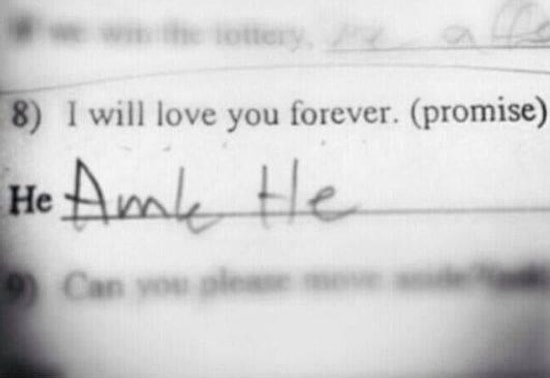 we win the lottery,
8) I will love you forever. (promise)
He Amk He
9) Can you please move aside?